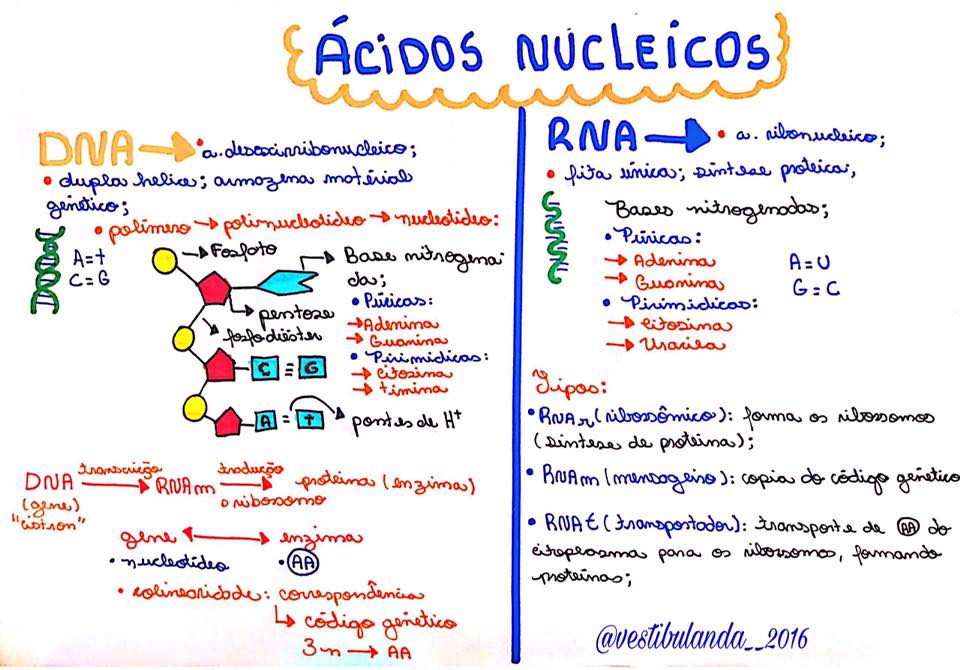 ÁCIDOS NUCLEICOS
DNA → • a. desoxirribonucleico;
• dupla hélice; armazena material
genético;
• polímero → polinucleotídeo → nucleotídeo:
A=t
C=G
→ Fosfato
→ Base nitrogena
da;
→ pentose
→ fosfodiéster
• Púricas:
→ Adenina
→ Guanina
• Pirimídicas:
→ Citosina
→ timina
C ≡ G
A = T → pontes de H⁺
DNA transcrição → RNAm tradução → proteína (enzima)
o ribossomo
(gene)
"cístron"
gene ↔ enzima
• nucleotídeo • AA
• colinearidade: correspondência
↳ código genético
3n → AA
RNA → • a. ribonucleico;
• fita única; síntese proteica;
Bases nitrogenadas;
• Púricas:
→ Adenina
→ Guanina
• Pirimídicas:
→ Citosina
→ Uracila
A=U
G=C
Tipos:
• RNAr (ribossômico): forma os ribossomos
(síntese de proteína);
• RNAm (mensageiro): copia do código genético
• RNAt (transportador): transporte de AA do
citoplasma para os ribossomos, formando
proteínas;
@vestibulanda__2016